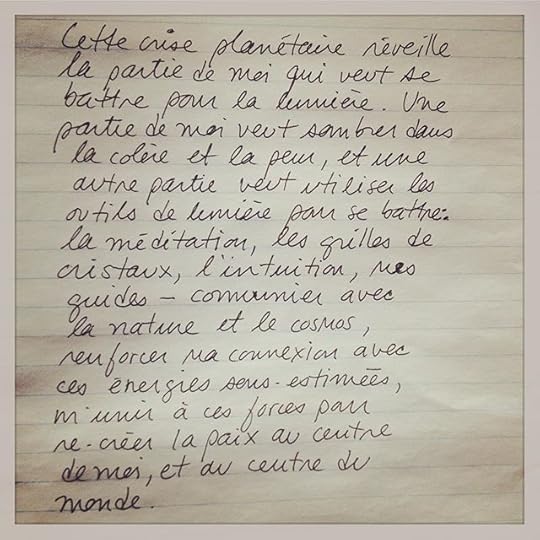 Cette crise planétaire réveille
la partie de moi qui veut se
battre pour la lumière. Une
partie de moi veut sombrer dans
la colère et la peur, et une
autre partie veut utiliser les
outils de lumière pour se battre:
la méditation, les grilles de
cristaux, l'intuition, mes
guides – communier avec
la nature et le cosmos,
renforcer ma connexion avec
ces énergies sous-estimées,
m'unir à ces forces pour
re-créer la paix au centre
de moi, et au centre du
monde.